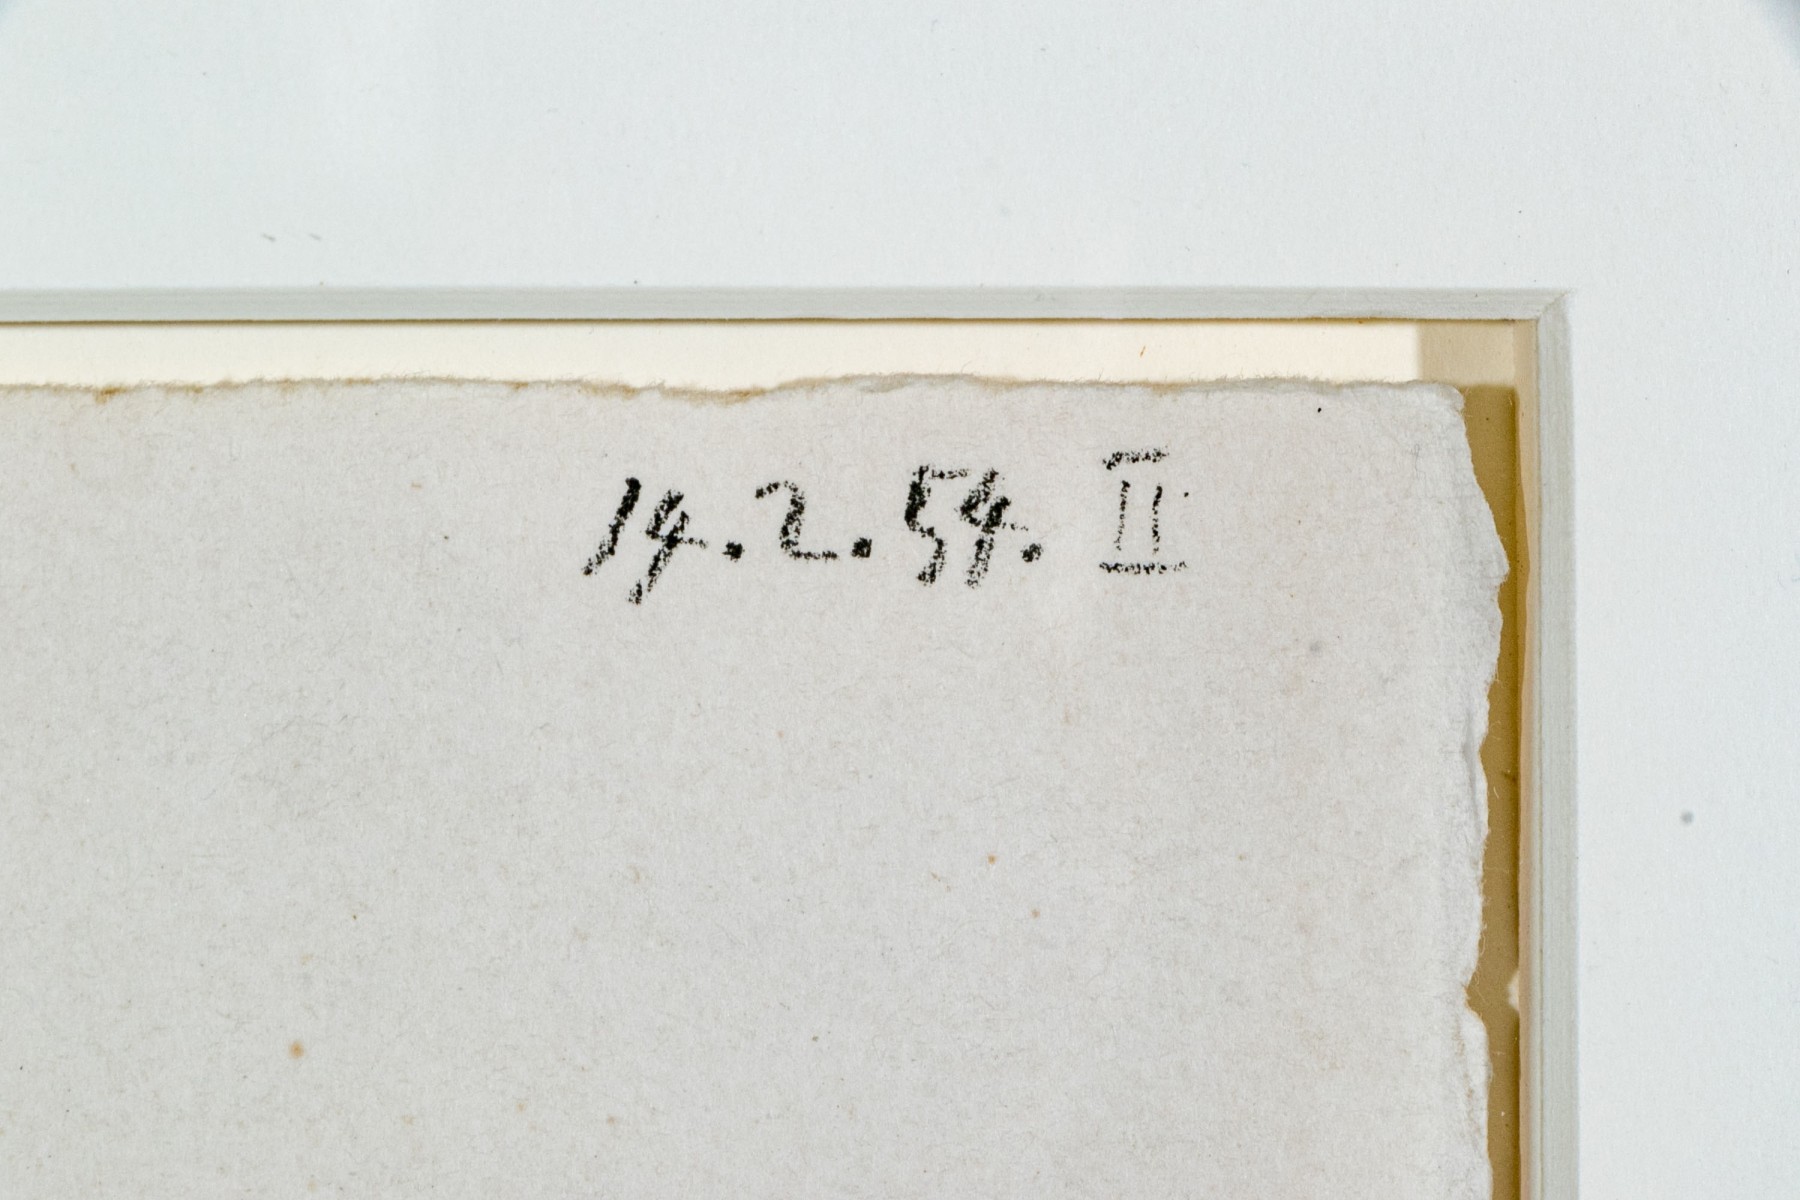 14.2.54. II